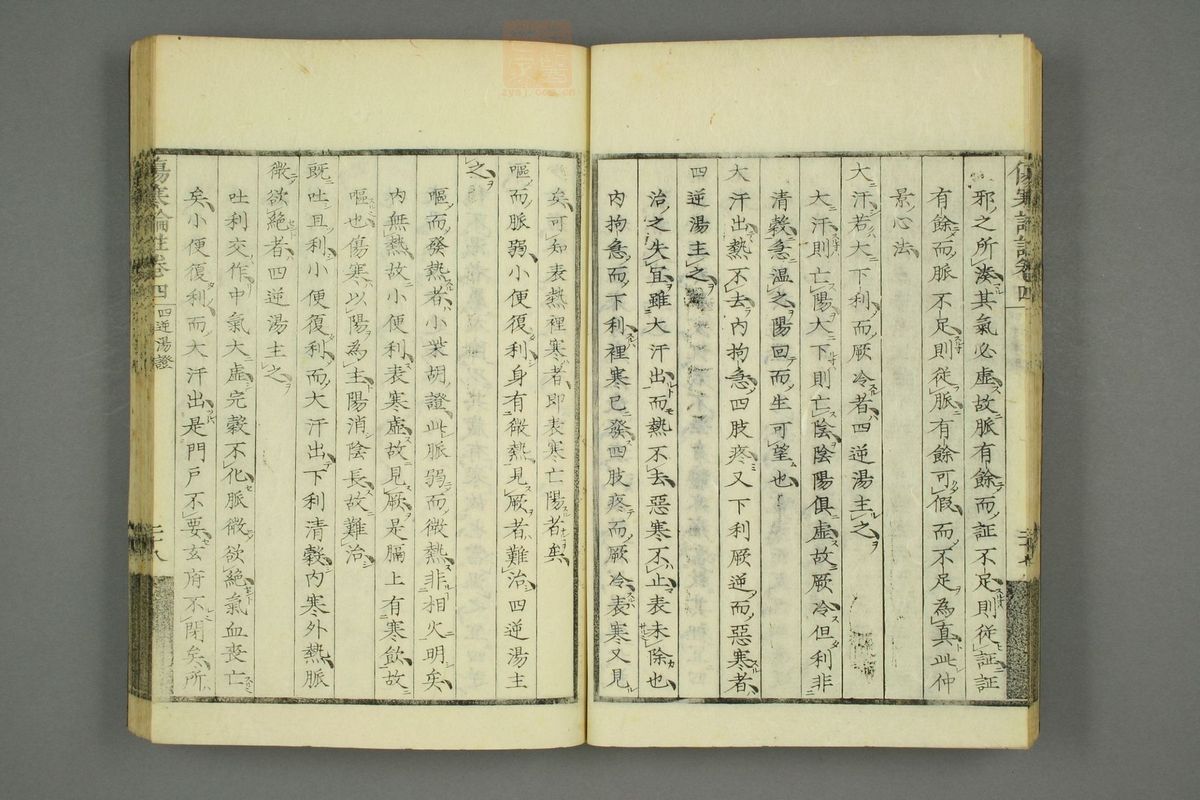 邪之所湊其氣必虛故脈有餘而証不足則從証証
有餘而脈不足則從脈有餘可假而不足為真此仲
景心法
大汗若大下利而厥冷者四逆湯主之
大汗則亡陽大下則亡陰陰陽俱虛故厥冷但利非
清穀急温之陽回而生可望也
大汗出熱不去內拘急四肢疼又下利厥逆而惡寒者
四逆湯主之
治之失宜雖大汗出而熱不去惡寒不止表未除也
內拘急而下利裡寒已發四肢疼而厥冷表寒又見
矣可知表熱裡寒者即表寒亡陽者矣
嘔而脈弱小便復利身有微熱見厥者難治四逆湯主
之
嘔而發熱者小柴胡證此脈弱而微熱非相火明矣
內無熱故小便利表寒虛故見厥是膈上有寒飲故
嘔也傷寒以陽為主陽消陰長故難治
既吐且利小便復利而大汗出下利清穀內寒外熱脈
微欲絕者四逆湯主之
吐利交作中氣大虛完穀不化脈微欲絕氣血喪亡
矣小便復利而大汗出是門戶不要玄府不閉矣所
傷寒論註卷四 四逆湯證 二十八